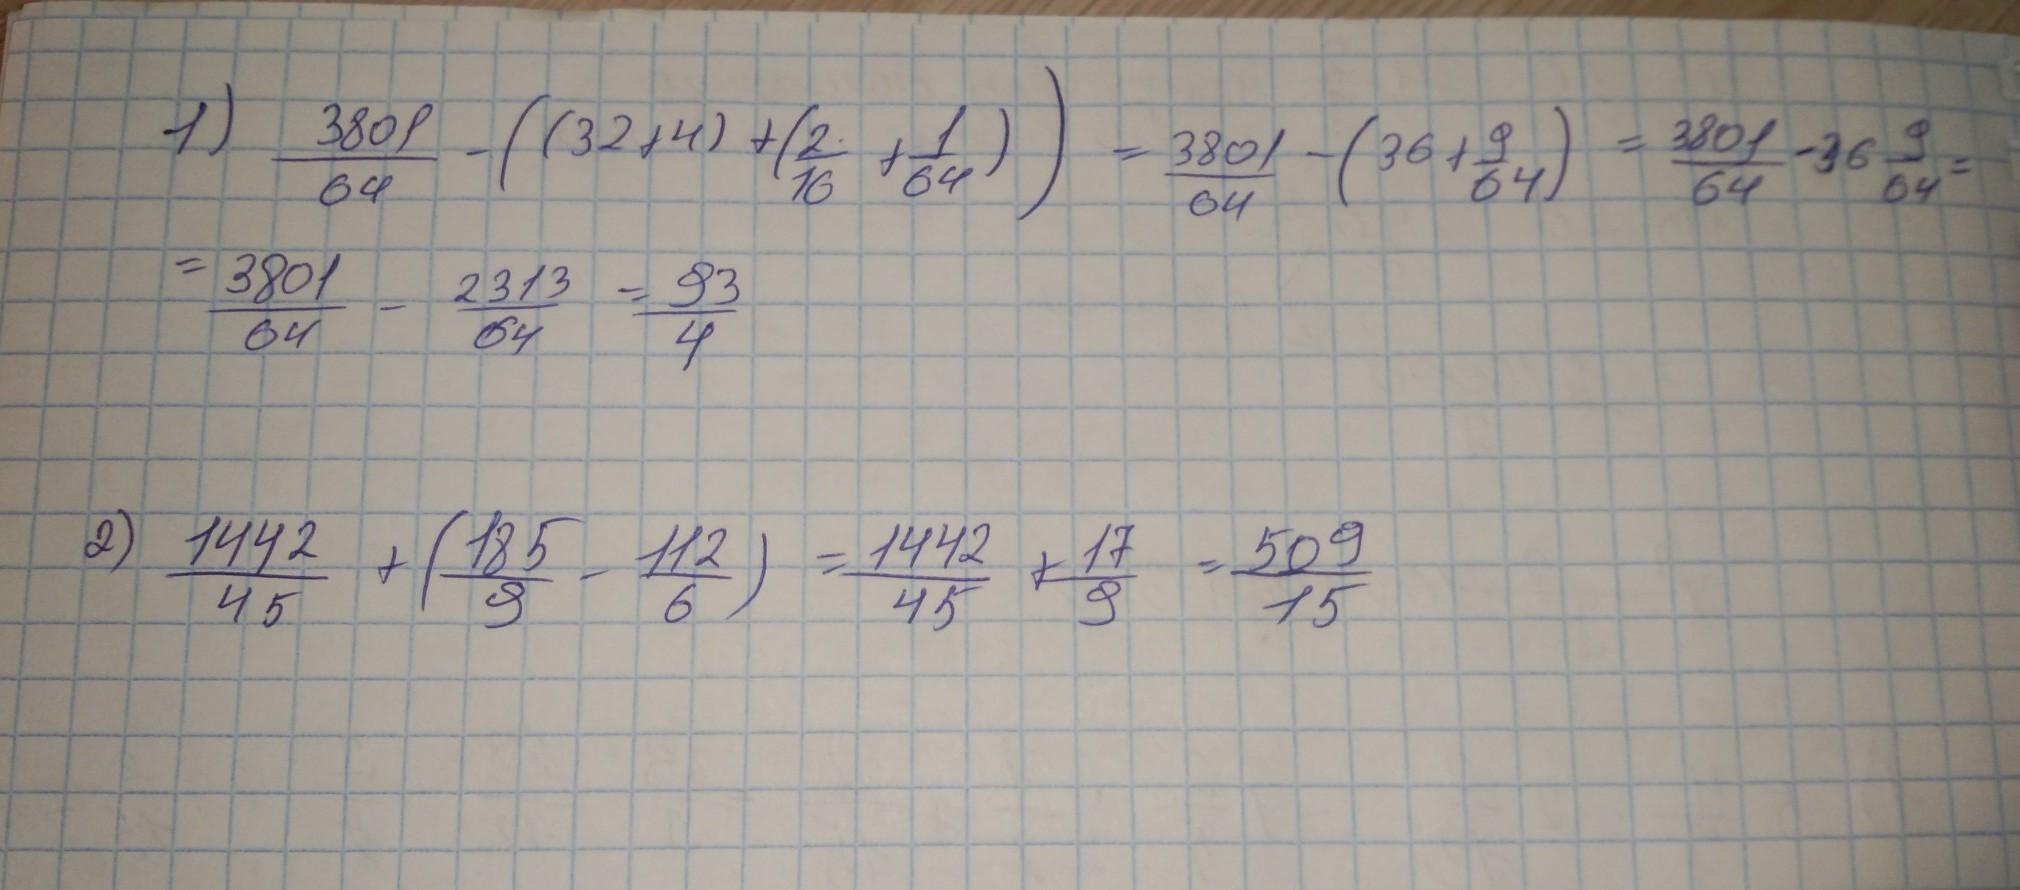 1) 3801/64 - ((32+4) + (2/16 + 1/64)) = 3801/64 - (36 + 9/64) = 3801/64 - 36 9/64 =
= 3801/64 - 2313/64 = 93/4
2) 1442/45 + (185/9 - 112/6) = 1442/45 + 17/9 = 509/15